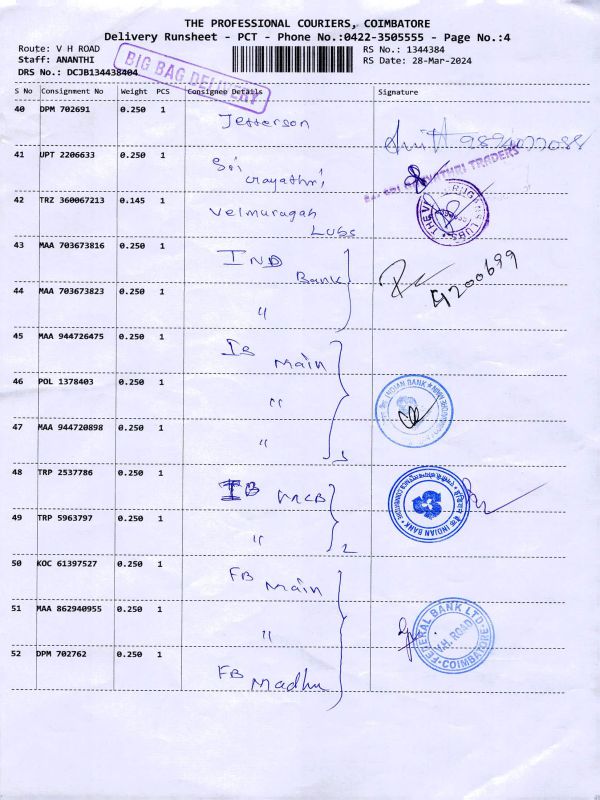 THE PROFESSIONAL COURIERS, COIMBATORE
Delivery Runsheet - PCT - Phone No.:0422-3505555 - Page No.:4
Route: V H ROAD
RS No.: 1344384
Staff: ANANTHI
RS Date: 28-Mar-2024
DRS No.: DCJB134438404
BIG BAG DELIVERY
S No Consignment No Weight PCS Consignee Details Signature
40 DPM 702691 0.250 1 Jefferson
41 UPT 2206633 0.250 1 Sri
Gayathri
TRADERS
42 TRZ 360067213 0.145 1 Velmurugan
Lubs
43 MAA 703673816 0.250 1 IND
Bank
44 MAA 703673823 0.250 1 "
45 MAA 944726475 0.250 1 IB Main
46 POL 1378403 0.250 1 "
INDIAN BANK
47 MAA 944720898 0.250 1 "
3
48 TRP 2537786 0.250 1 IB
49 TRP 5963797 0.250 1 "
2
INDIAN BANK
50 KOC 61397527 0.250 1 FB Main
51 MAA 862940955 0.250 1 "
FEDERAL BANK LTD
V.H. ROAD
COIMBATORE
52 DPM 702762 0.250 1 FB Madhu